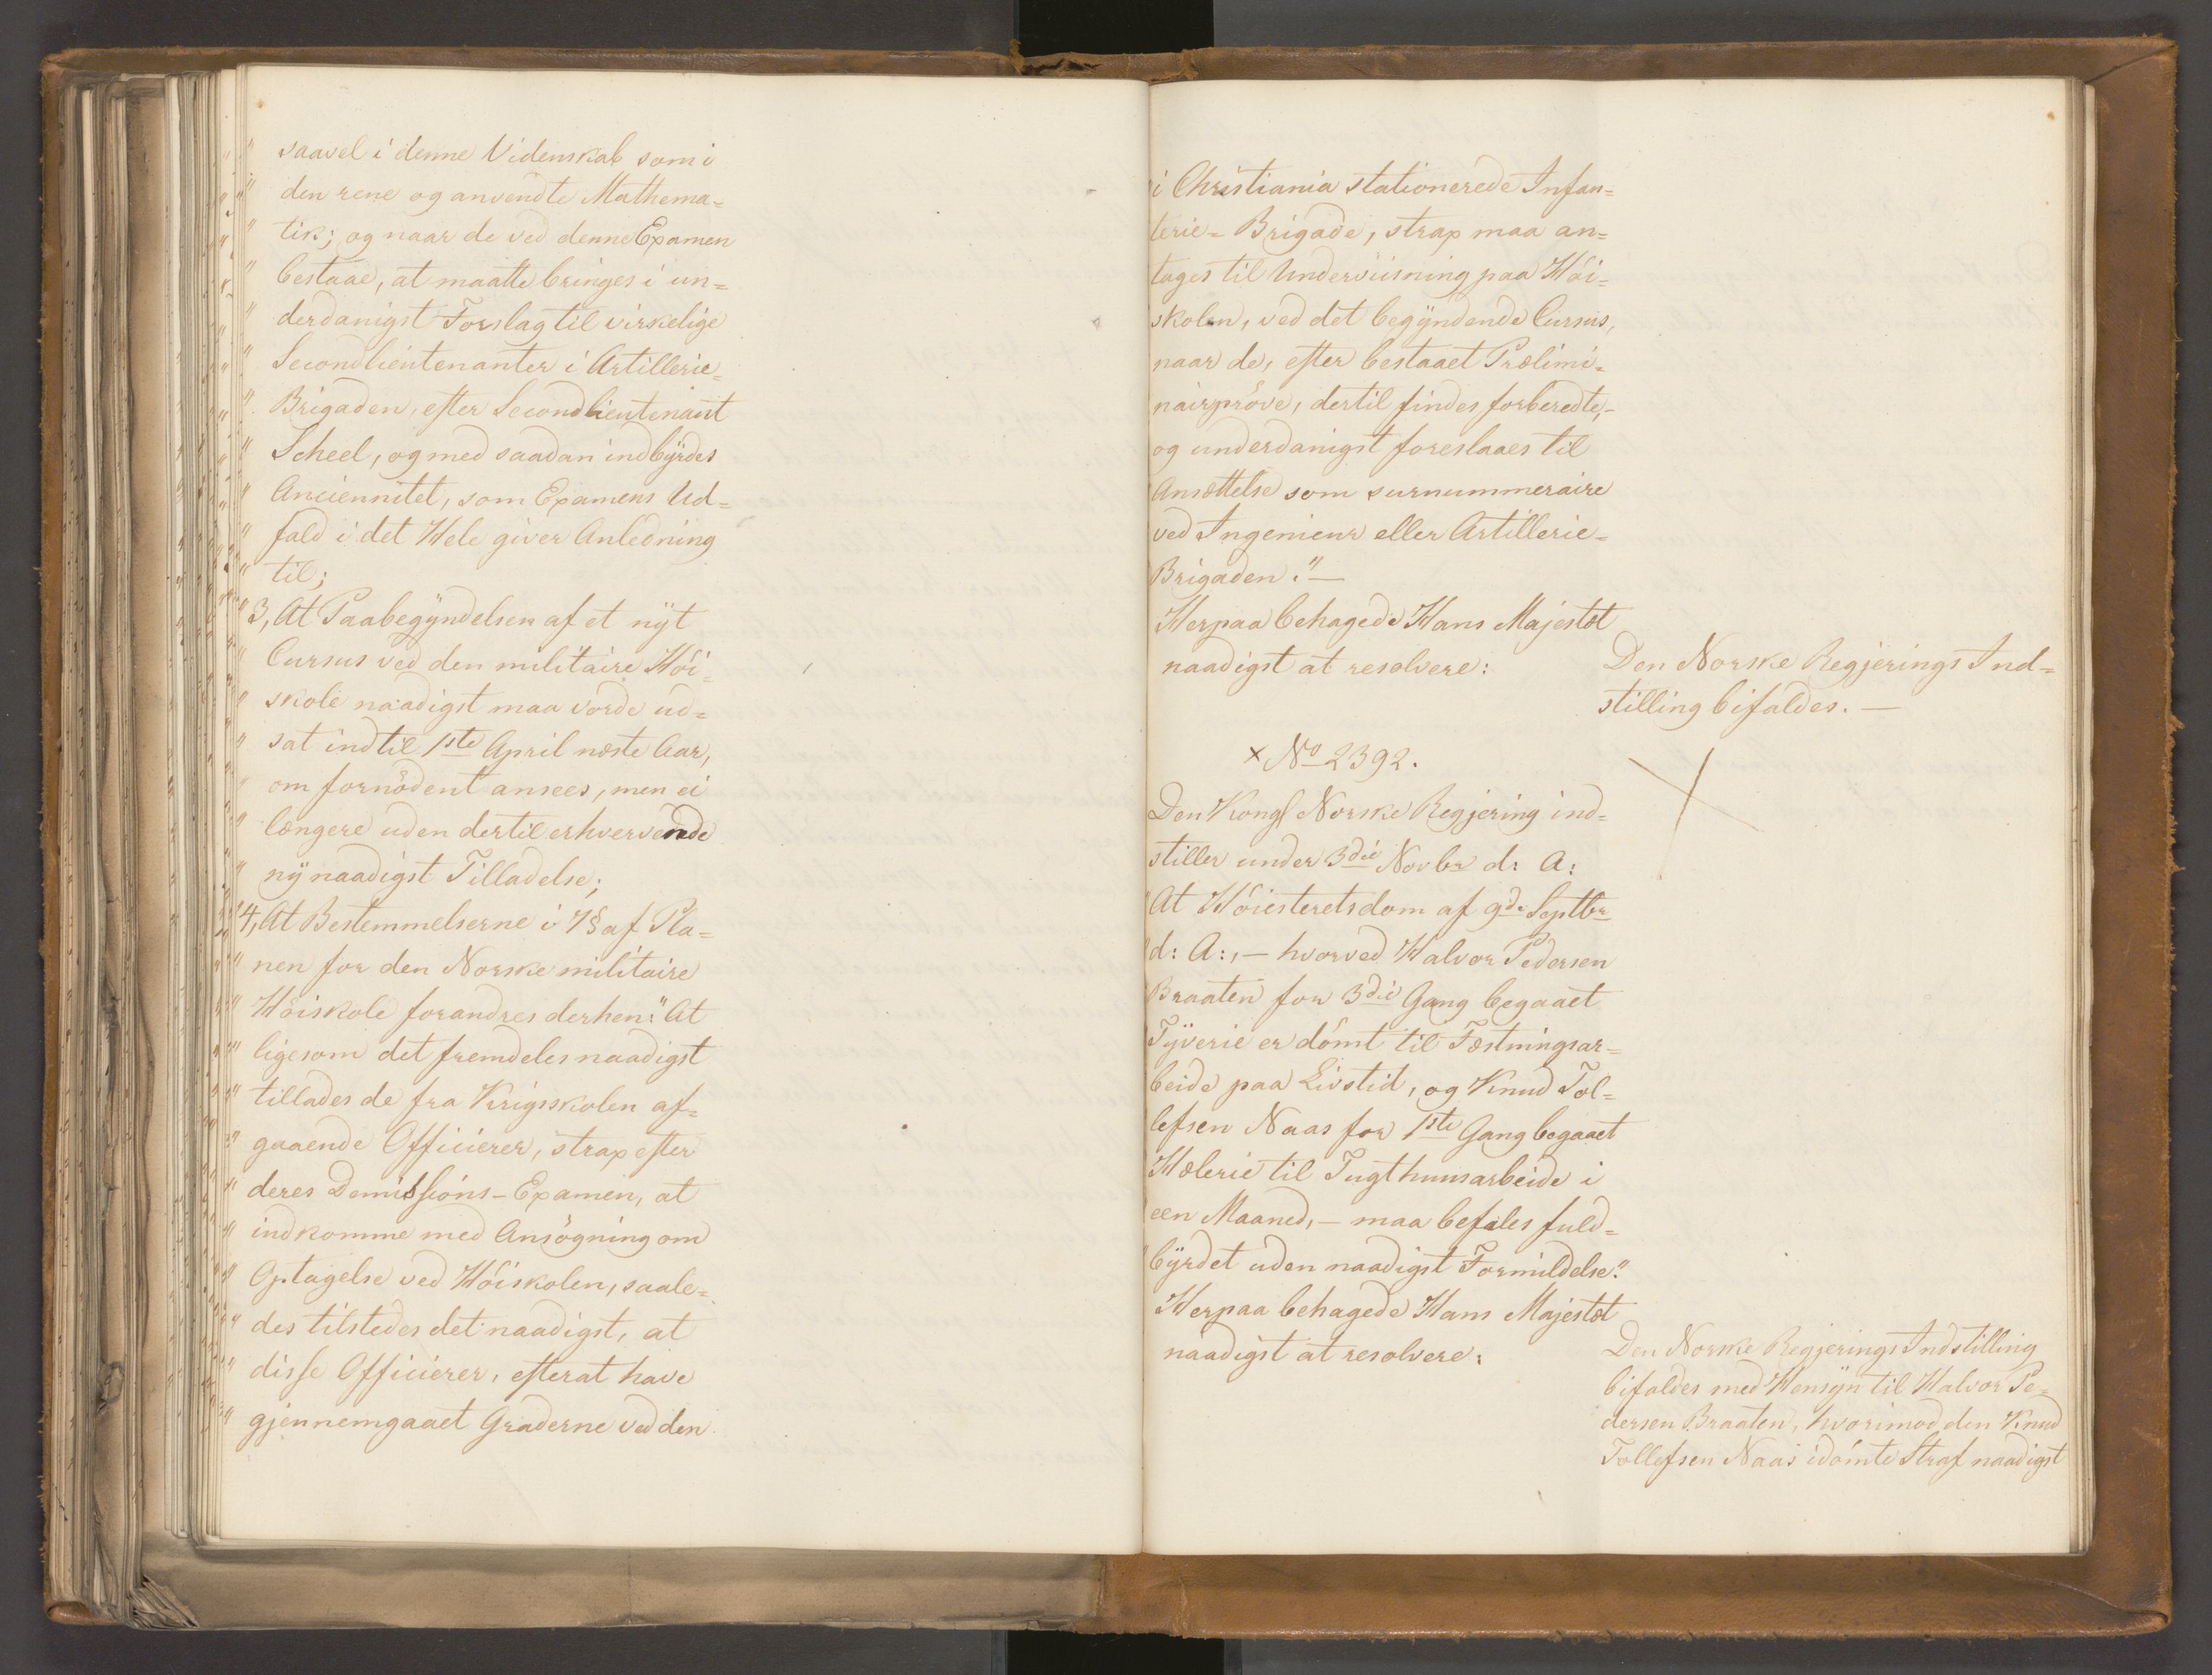 " saavel i denne Videnskab som i
" den rene og anvendte Mathema=
" tik; og naar de ved denne Examen
" bestaae, at maatte bringes i un=
" derdanigst Forslag til virkelige
" Secondlieutenanter i Artillerie=
" Brigaden, efter Secondlieutenant
" Scheel, og med saadan indbÿrdes
" Anciennitet, som Examens Ud=
" fald i det Hele giver Anledning
" til;
" 3, At Paabegÿndelsen af et nÿt
" Cursus ved den militaire Höi=
" skole naadigst maa vorde ud=
" sat indtil 1ste April næste Aar,
" om fornödent ansees, men ei
" længere uden dertil erhvervende
" nÿ naadigst Tilladelse;
" 4, At Bestemmelserne i 7§ af Pla=
" nen for den Norske militaire
" Höiskole forandres derhen: "At
" ligesom det fremdeles naadigst
" tillades de fra Krigsskolen af=
" gaaende Officierer, strax efter
" deres Demissions-Examen, at
" indkomme med Ansögning om
" Optagelse ved Höiskolen, saale=
" des tilstedes det naadigst, at
" disse Officierer, efterat have
" gjennemgaaet Graderne ved den
i Christiania stationerede Infan=
terie=Brigade, strax maa an=
tages til Underviisning paa Höi=
skolen, ved det begÿndende Cursus,
naar de, efter bestaaet Prælimi=
nairpröve, dertil findes forberedte,-
og underdanigst foreslaaes til
Ansættelse som surnummeraire
ved Ingenieur eller Artillerie=
Brigaden." —
Herpaa behagede Hans Majestæt
naadigst at resolvere:
Den Norske Regjerings Ind=
stilling bifaldes. —
× No 2392.
Den Kongl Norske Regjering ind=
stiller under 3die Novbr d: A:
"At Höiesteretsdom af 9de Septbr
d: A:, — hvorved Halvor Pedersen
Braaten for 3die Gang begaaet
Tÿverie er dömt til Fæstningsar=
beide paa Livstid, og Knud Tol=
lefsen Naas for 1ste Gang begaaet
Hælerie til Tugthuusarbeide i
een Maaned, — maa befales fuld=
bÿrdet uden naadigst Formildelse."
Herpaa behagede Hans Majestæt
naadigst at resolvere:
Den Norske Regjerings Indstilling
bifaldes med Hensÿn til Halvor Pe=
dersen Braaten, hvorimod den Knud
Tollefsen Naas idömte Straf naadigst